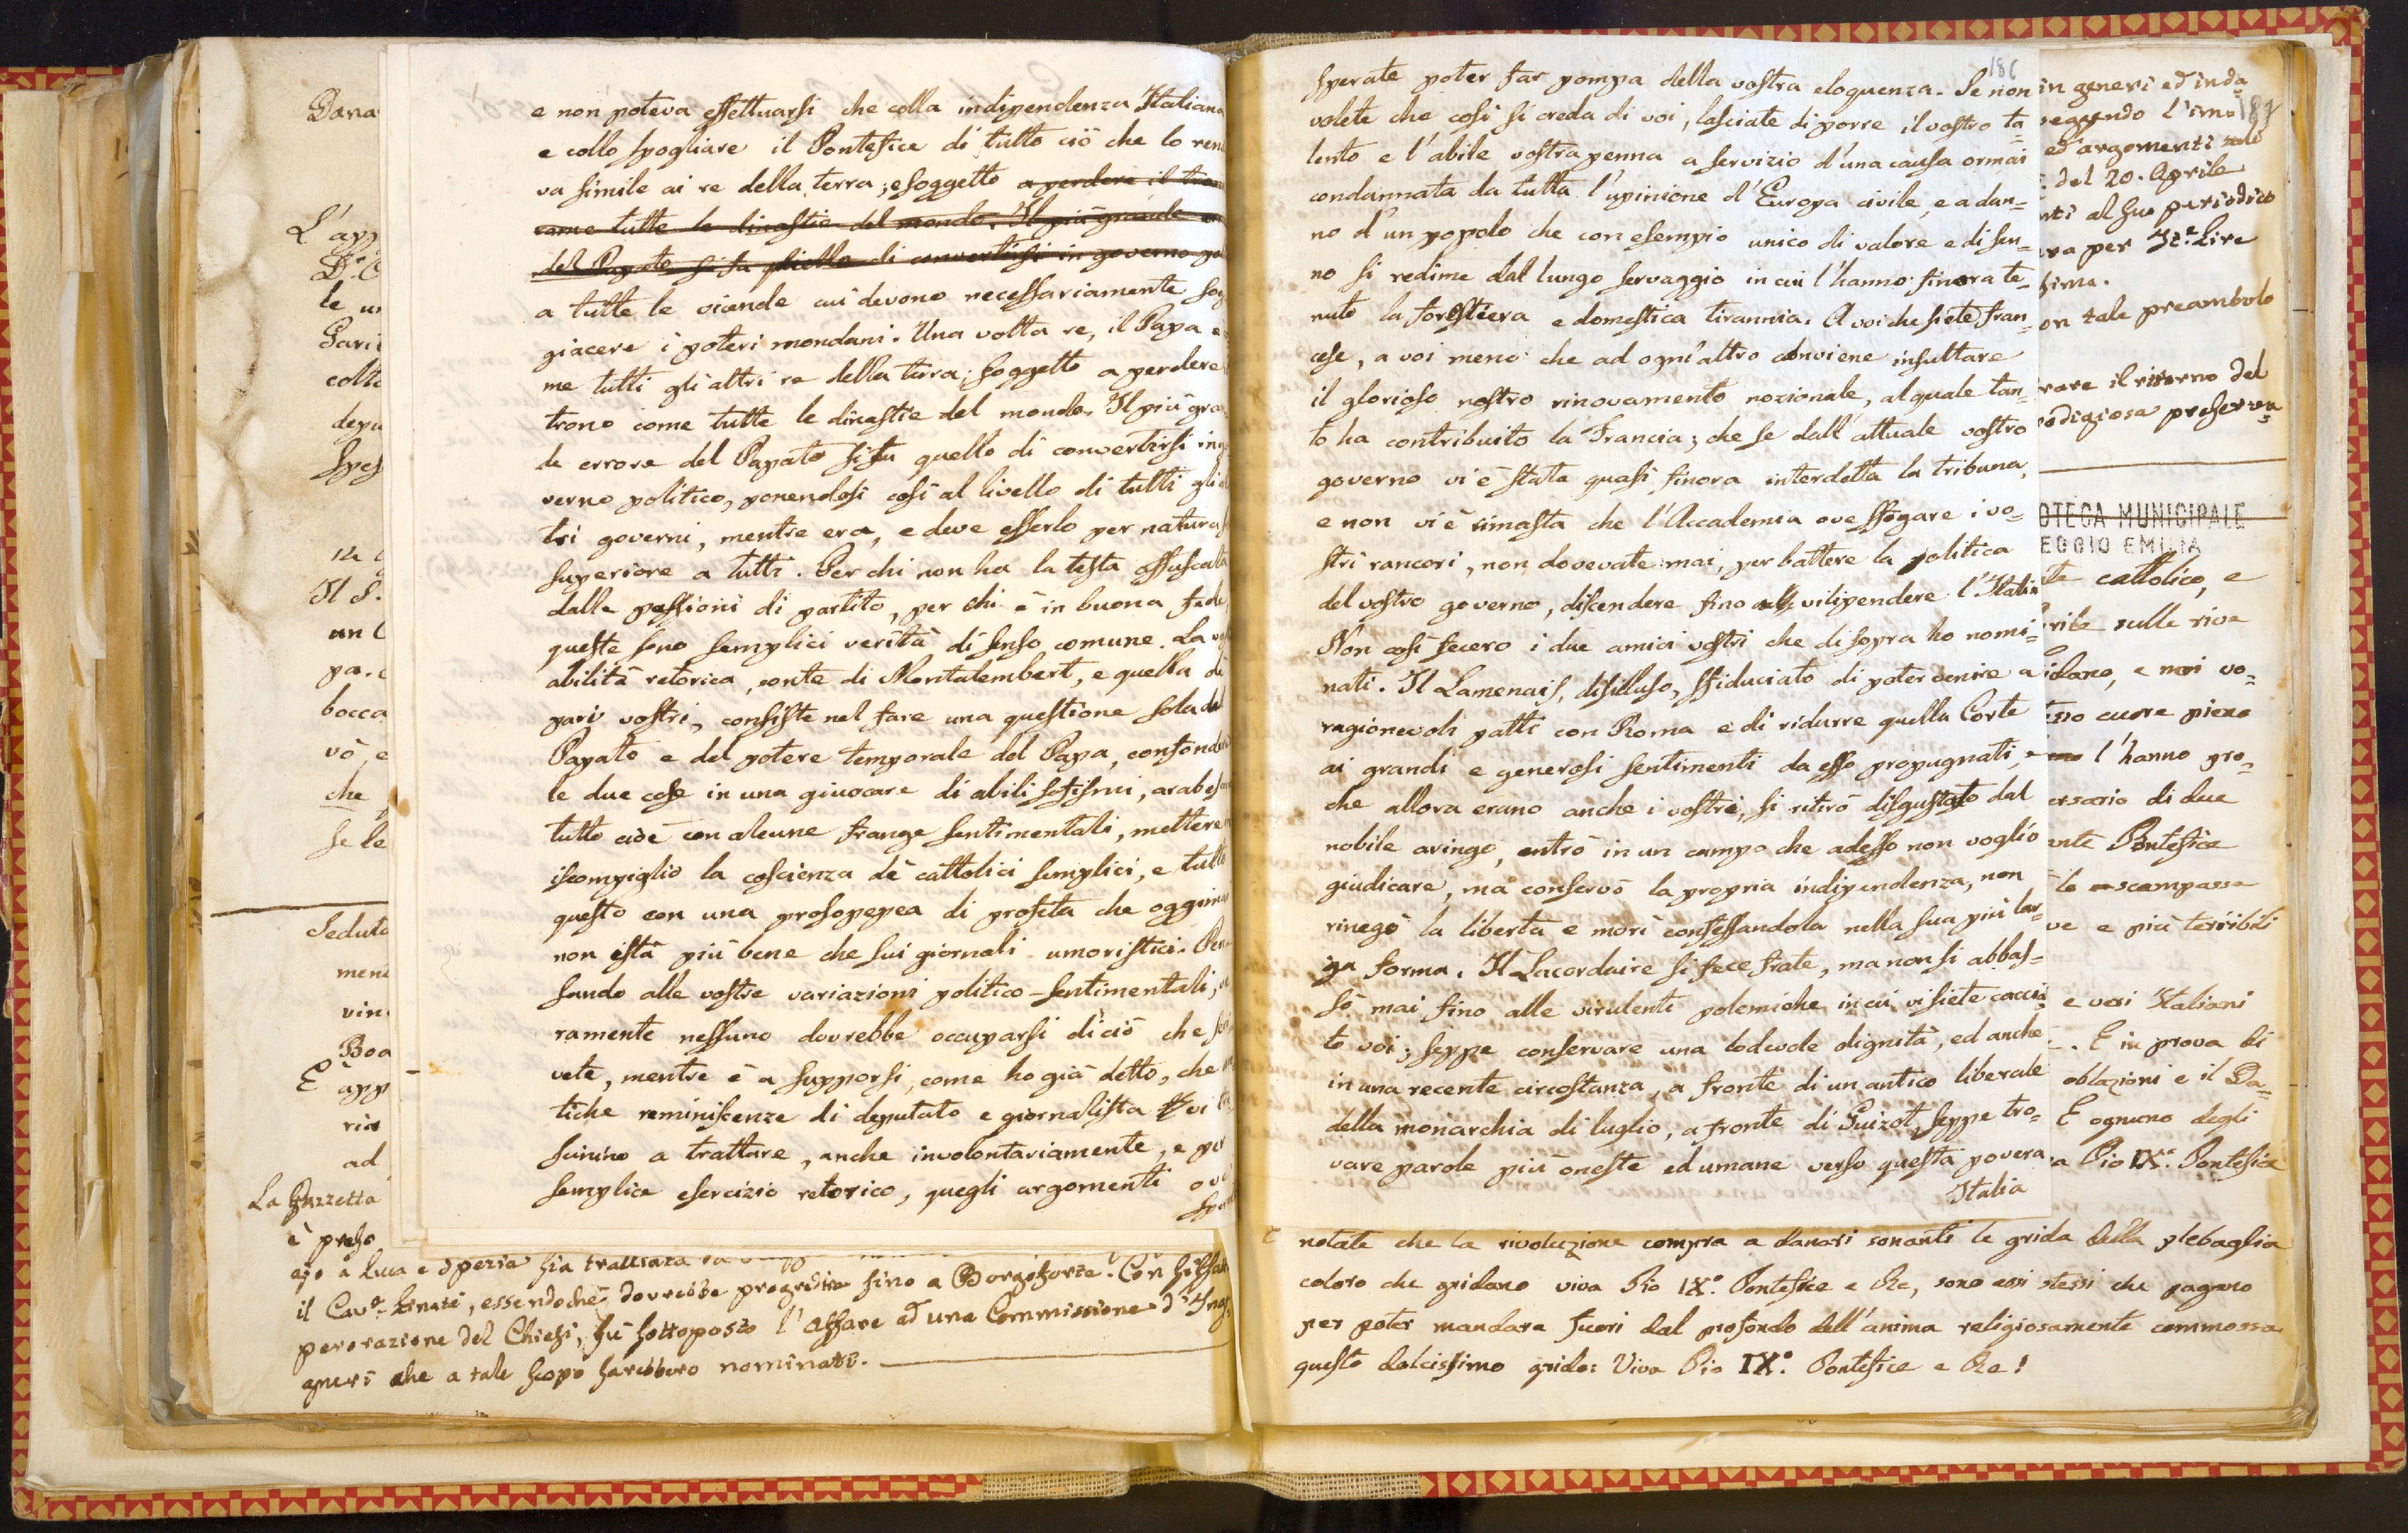 Dana
L'app
D.r C
le un
Parin
colte
depu
spes
na
Il S.
un
pa.
bocca
vò, e
che
se le
Seduta
ment
vin
Boa
E app
ria
ad
La Gazzetta
è preso
e non poteva effettuarsi che colla indipendenza Italiana
e collo spogliare il Pontefice di tutto ciò che lo ren
va simile ai re della terra; e soggetto a perdere il tron
come tutte le dinastie del mondo. Il più grande err
del Papato si fu quello di convertirsi in governo po
a tutte le vicende cui devono necessariamente sog
giacere i poteri mondani. Una volta re, il Papa e
me tutti gli altri re della terra; soggetto a perdere
trono come tutte le dinastie del mondo. Il più gran
de errore del Papato si fu quello di convertirsi in go
verno politico, ponendosi così al livello di tutti gli al
tri governi, mentre era, e deve esserlo per natura s
superiore a tutti. Per chi non ha la testa offuscata
dalle passioni di partito, per chi è in buona fede,
queste sono semplici verità di senso comune. La vos
abilità retorica, conte di Montalembert, e quella de
pari vostri, consiste nel fare una questione sola del
Papato e del potere temporale del Papa, confonder
le due cose in una giuocare di abili sofismi, arabes
tutto ciò con alcune frange sentimentali, mettere
iscompiglio la coscienza dè cattolici semplici, e tutto
questo con una prosopepea di profeta che oggimai
non istà più bene che sui giornali umoristici. Pen
sando alle vostre variazioni politico-sentimentali, ve
ramente nessuno dovrebbe occuparsi di ciò che scri
vete, mentre è a supporsi, come ho già detto, che an
tiche reminiscenze di deputato e giornalista vi tra
scinino a trattare, anche involontariamente, e per
semplice esercizio retorico, quegli argomenti ove
spera
a Luca e Spezia sia trattata
il Cav.e Lunati, essendochè dovrebbe progredire fino a Borgoforte. Con si fatta
perorazione del Chiesi, fù sottoposto l'affare ad una Commissione d'Inge
gneri che a tale scopo sarebbero nominati.
186
sperate poter far pompa della vostra eloquenza. Se non
volete che così si creda di voi, lasciate di porre il vostro ta=
lento e l'abile vostra penna a servizio d'una causa ormai
condannata da tutta l'opinione d'Europa civile, e a dan=
no d'un popolo che con esempio unico di valore e di sen=
no si redime dal lungo servaggio in cui l'hanno finora te=
nuto la forestiera e domestica tirannia. A voi che siete fran=
cese, a voi meno che ad ogni altro conviene insultare
il glorioso nostro rinovamento nazionale, al quale tan=
to ha contribuito la Francia; che se dall'attuale vostro
governo vi è stata quasi finora interdetta la tribuna,
e non vi è rimasta che l'Accademia ove sfogare i vo=
stri rancori, non dovevate mai, per battere la politica
del vostro governo, discendere fino a vilipendere l'Italia
Non così fecero i due amici vostri che di sopra ho nomi=
nati. Il Lamenais, disilluso, sfiduciato di poter venire a
ragionevoli patti con Roma e di ridurre quella Corte
ai grandi e generosi sentimenti da esso propugnati, e
che allora erano anche i vostri, si ritirò disgustato dal
nobile aringo, entrò in un campo che adesso non voglio
giudicare, ma conservò la propria indipendenza, non
rinegò la libertà e morì confessandola nella sua più lar=
ga forma. Il Lacordaire si fece frate, ma non si abbas=
sò mai fino alle virulenti polemiche in cui vi siete caccia
to voi; seppe conservare una lodevole dignità, ed anche
in una recente circostanza, a fronte di un antico liberale
della monarchia di luglio, a fronte di Guizot, seppe tro=
vare parole più oneste ed umane verso questa povera
Italia
187
in generi ed inda
reggendo l'imo
ed argomenti
del 20. Aprile
nti al suo periodico
ra per It.e Lire
sima.
on tale preambolo
rare il ritorno del
rodigiosa preserva=
OTECA MUNICIPALE
EGGIO EMILIA
te cattolico, e
rile sulle rive
idano, e noi vo=
sso cuore pieno
l'hanno pro=
ersario di due
nte Pontefice
le scompasse
ve e più terribili
e veri Italiani
. E in prova di
oblazioni e il Da=
E ognuno degli
a Pio IX.° Pontefice
notate che la rivoluzione compra a danari sonanti le grida della plebaglia
coloro che gridano viva Pio IX.° Pontefice e Re, sono essi stessi che pagano
per poter mandare fuori dal profondo dell'anima religiosamente commossa
questo dolcissimo grido: Viva Pio IX.° Pontefice e Re!